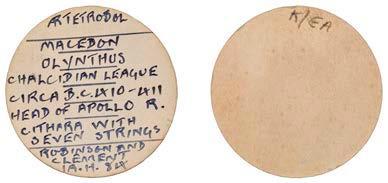 ÆTETROBOL
MACEDON
OLYNTHUS
CHALCIDIAN LEAGUE
CIRCA B.C. 410-411
HEAD OF APOLLO R.
CITHARA WITH
SEVEN STRINGS
ROBINSON AND
CLEMENT
A.H. 84
K/EA